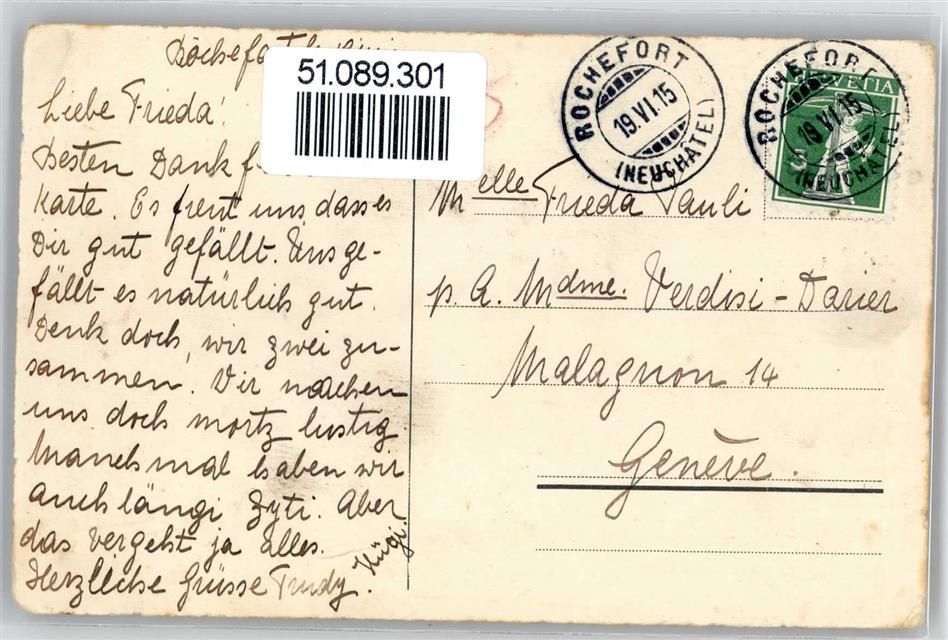 Rochefort
51.089.301
Liebe Frieda!
Besten Dank
Karte. Es freut uns, dass es
Dir gut gefällt. Uns ge-
fällt es natürlich gut.
Denk doch, wir zwei zu-
sammen. Wir machen
uns doch mortz lustig.
Manchmal haben wir
auch längi Zyti. Aber
das vergeht ja alles.
Herzliche Grüsse Trudy.
ROCHEFORT
19.VI.15
(NEUCHATEL)
ROCHEFORT
19.VI.15
(NEUCHATEL)
HELVETIA
5
Melle Frieda Pauli
p. A. Mdme. Verdisi-Darier
Malagnon 14
Genève.